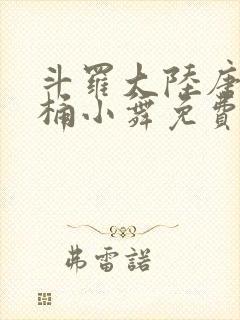 斗羅大陸唐
桶小舞免費
弗雷諾